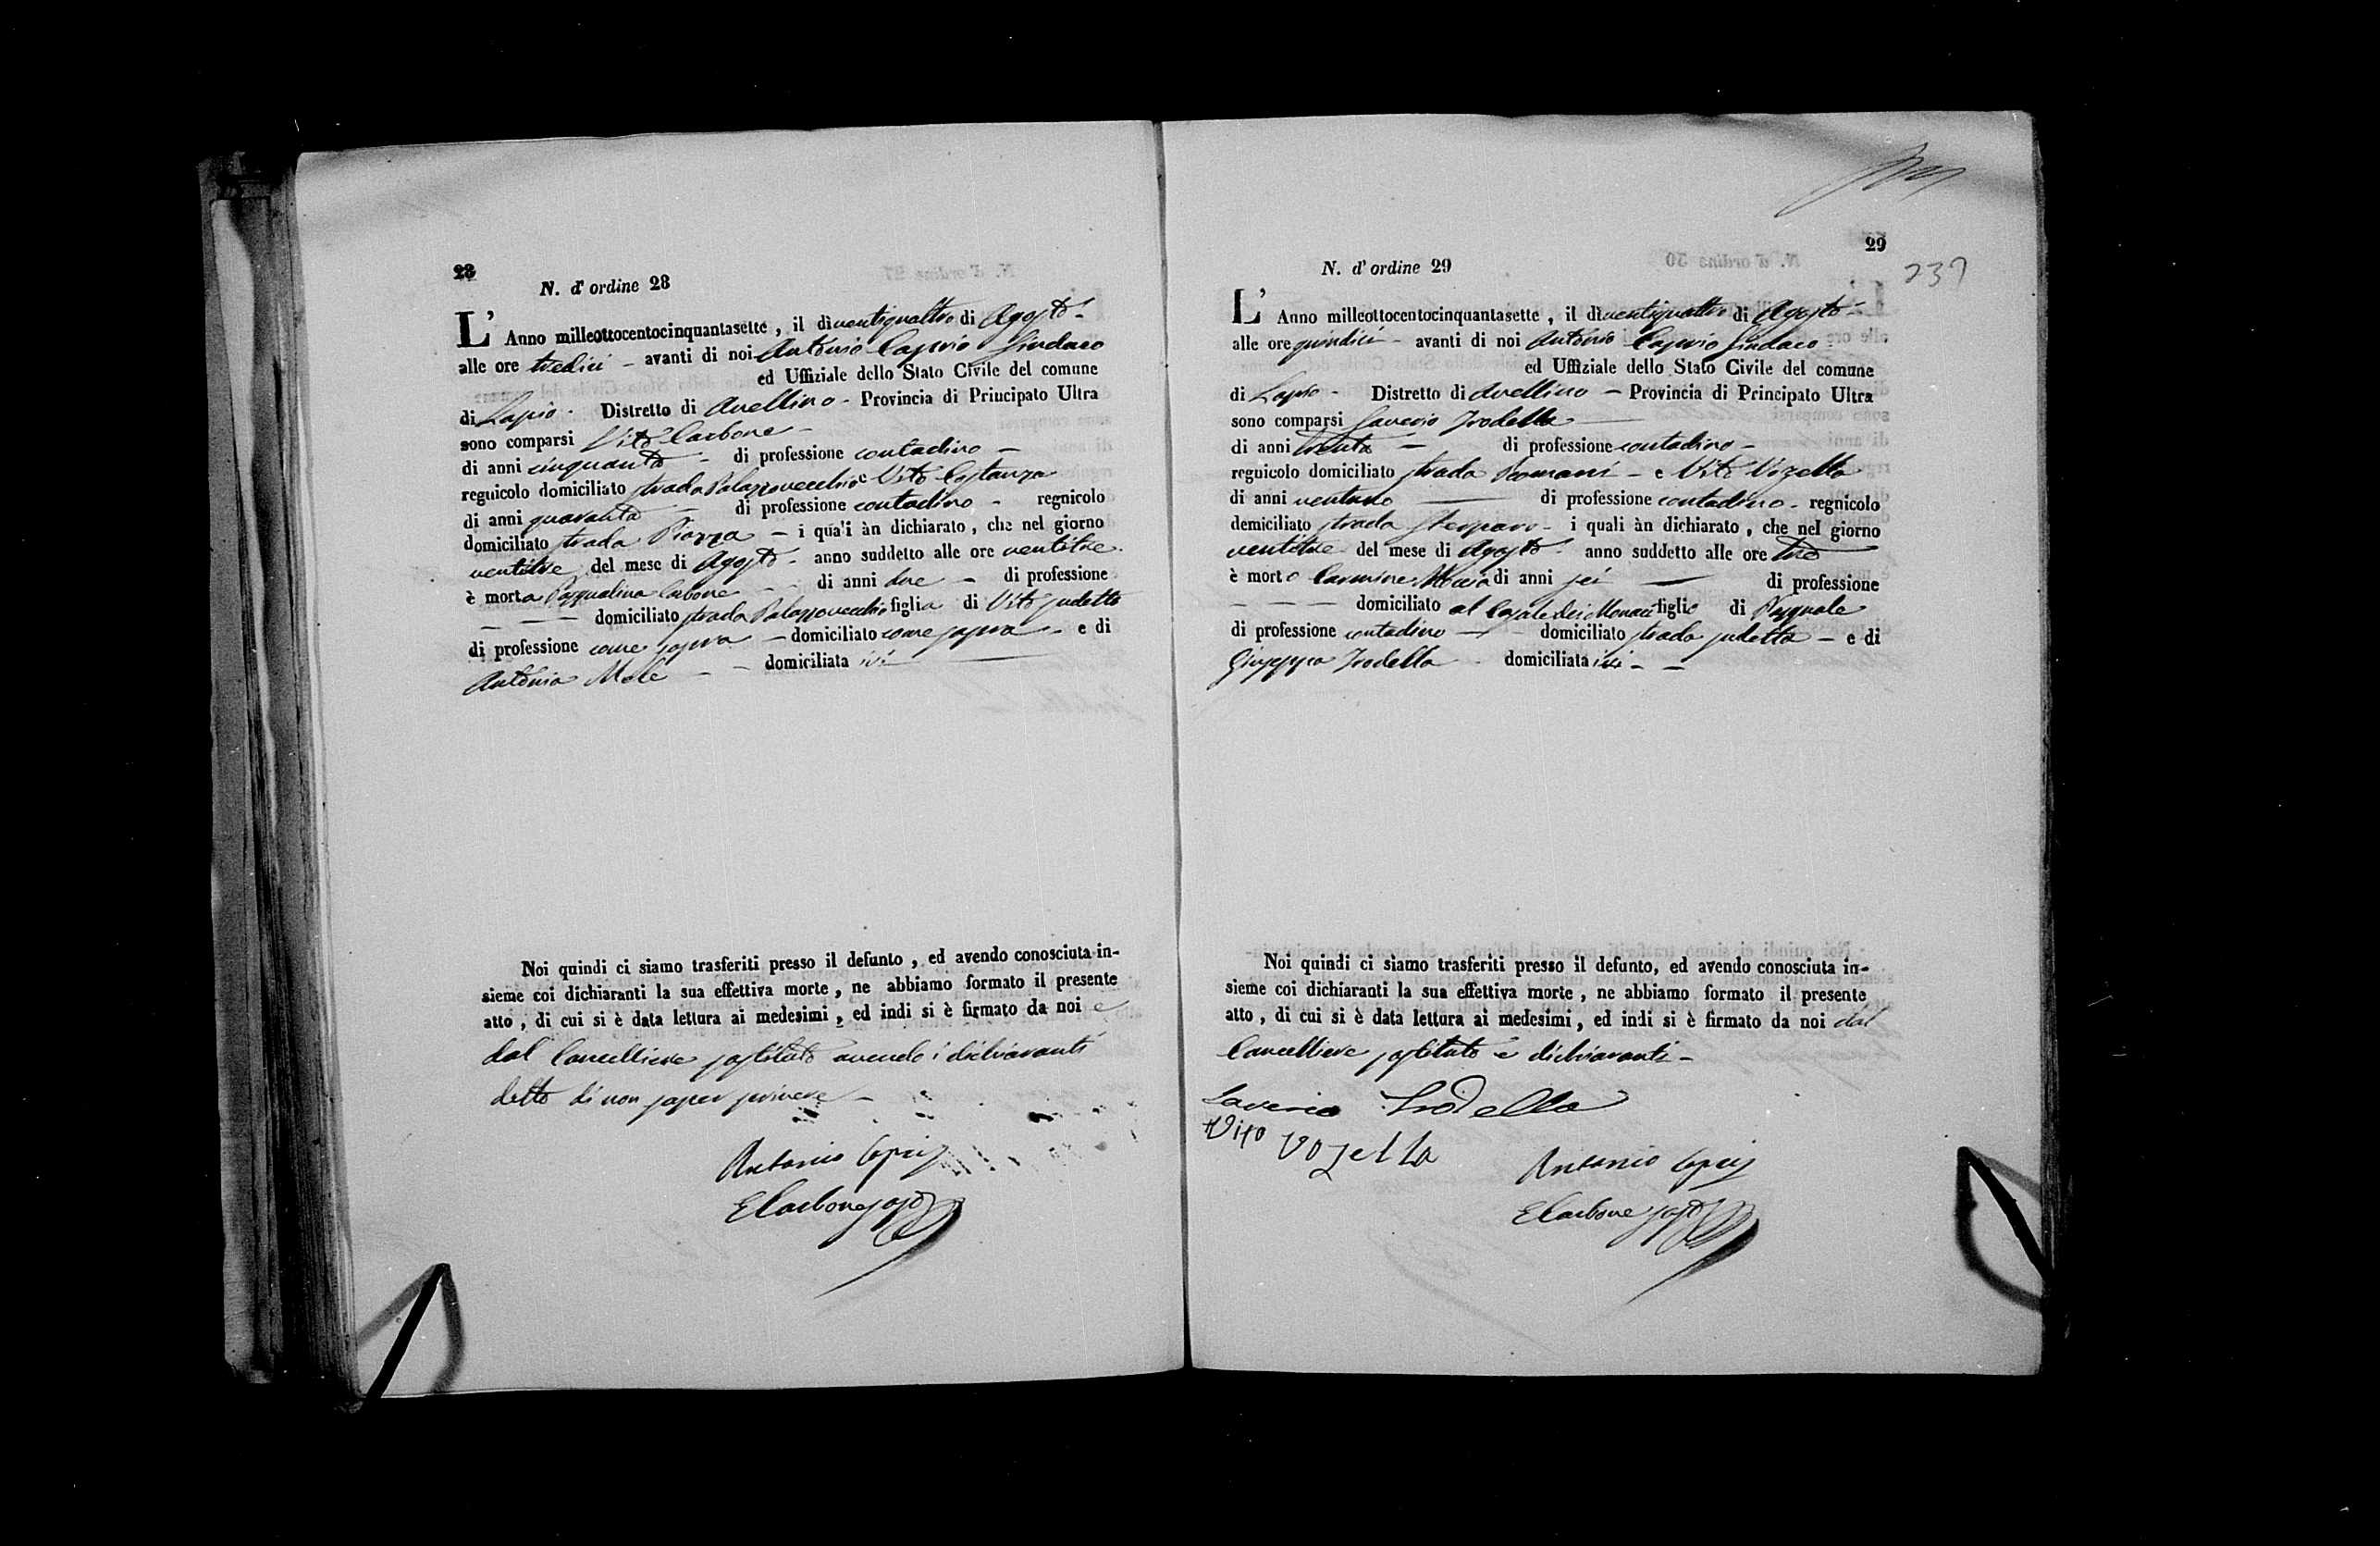 28
N. d'ordine 28
L' Anno milleottocentocinquantasette, il dì ventiquattro di Agosto -
alle ore tredici - avanti di noi Antonio Caprio Sindaco
ed Uffiziale dello Stato Civile del comune
di Lapio - Distretto di Avellino - Provincia di Principato Ultra
sono comparsi Vito Carbone -
di anni cinquanta - di professione contadino -
regnicolo domiciliato strada Palazzovecchio e Vito Costanza
di anni quaranta - di professione contadino - regnicolo
domiciliato strada Piazza - i quali àn dichiarato, che nel giorno
ventitre del mese di Agosto - anno suddetto alle ore ventitre
è morta Pasqualina Carbone - di anni due - di professione
- - - domiciliato strada Palazzovecchio figlia di Vito sudetto
di professione come sopra - domiciliato come sopra - e di
Antonia Mele - - domiciliata ivi
Noi quindi ci siamo trasferiti presso il defunto, ed avendo conosciuta in-
sieme coi dichiaranti la sua effettiva morte, ne abbiamo formato il presente
atto, di cui si è data lettura ai medesimi, ed indi si è firmato da noi e
dal Cancelliere sostituto avendo i dichiaranti
detto di non saper scrivere -
Antonio Caprio
E Carbone sost
29
237
N. d'ordine 29
L' Anno milleottocentocinquantasette, il dì ventiquattro di Agosto -
alle ore quindici - avanti di noi Antonio Caprio Sindaco
ed Uffiziale dello Stato Civile del comune
di Lapio - Distretto di Avellino - Provincia di Principato Ultra
sono comparsi Saverio Trodella
di anni trenta - di professione contadino -
regnicolo domiciliato strada Romani - e Vito Vozella
di anni ventuno - di professione contadino - regnicolo
domiciliato strada - i quali àn dichiarato, che nel giorno
ventitre del mese di Agosto - anno suddetto alle ore tre
è morto Carmine di anni sei - di professione
- - - domiciliato al Casale dei Monaci figlio di Pasquale
di professione contadino - domiciliato strada sudetta - e di
Giuseppa Trodella - domiciliata ivi - -
Noi quindi ci siamo trasferiti presso il defunto, ed avendo conosciuta in-
sieme coi dichiaranti la sua effettiva morte, ne abbiamo formato il presente
atto, di cui si è data lettura ai medesimi, ed indi si è firmato da noi dal
Cancelliere sostituto e dichiaranti -
Saverio Trodella
Vito Vozella
Antonio Caprio
E Carbone sost